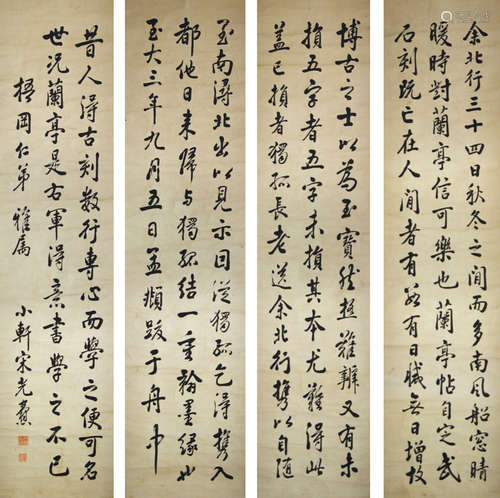 余北行三十四日秋冬之間而多南風船窗晴
暖時對蘭亭信可樂也蘭亭帖自定武
石刻既亡在人間者有數有日減無日增故
博古之士以為至寶然極難辨又有未
損五字者五字未損其本尤難得此
蓋已損者獨孤長老送余北行携以自隨
至南潯北出以見示因從獨孤乞得携入
都他日来歸与獨孤結一重翰墨緣也
至大三年九月五日孟頫跋于舟中
昔人得古刻數行專心而學之便可名
世况蘭亭是右軍得意書學之不已
梧岡仁弟 雅屬
小軒宋光